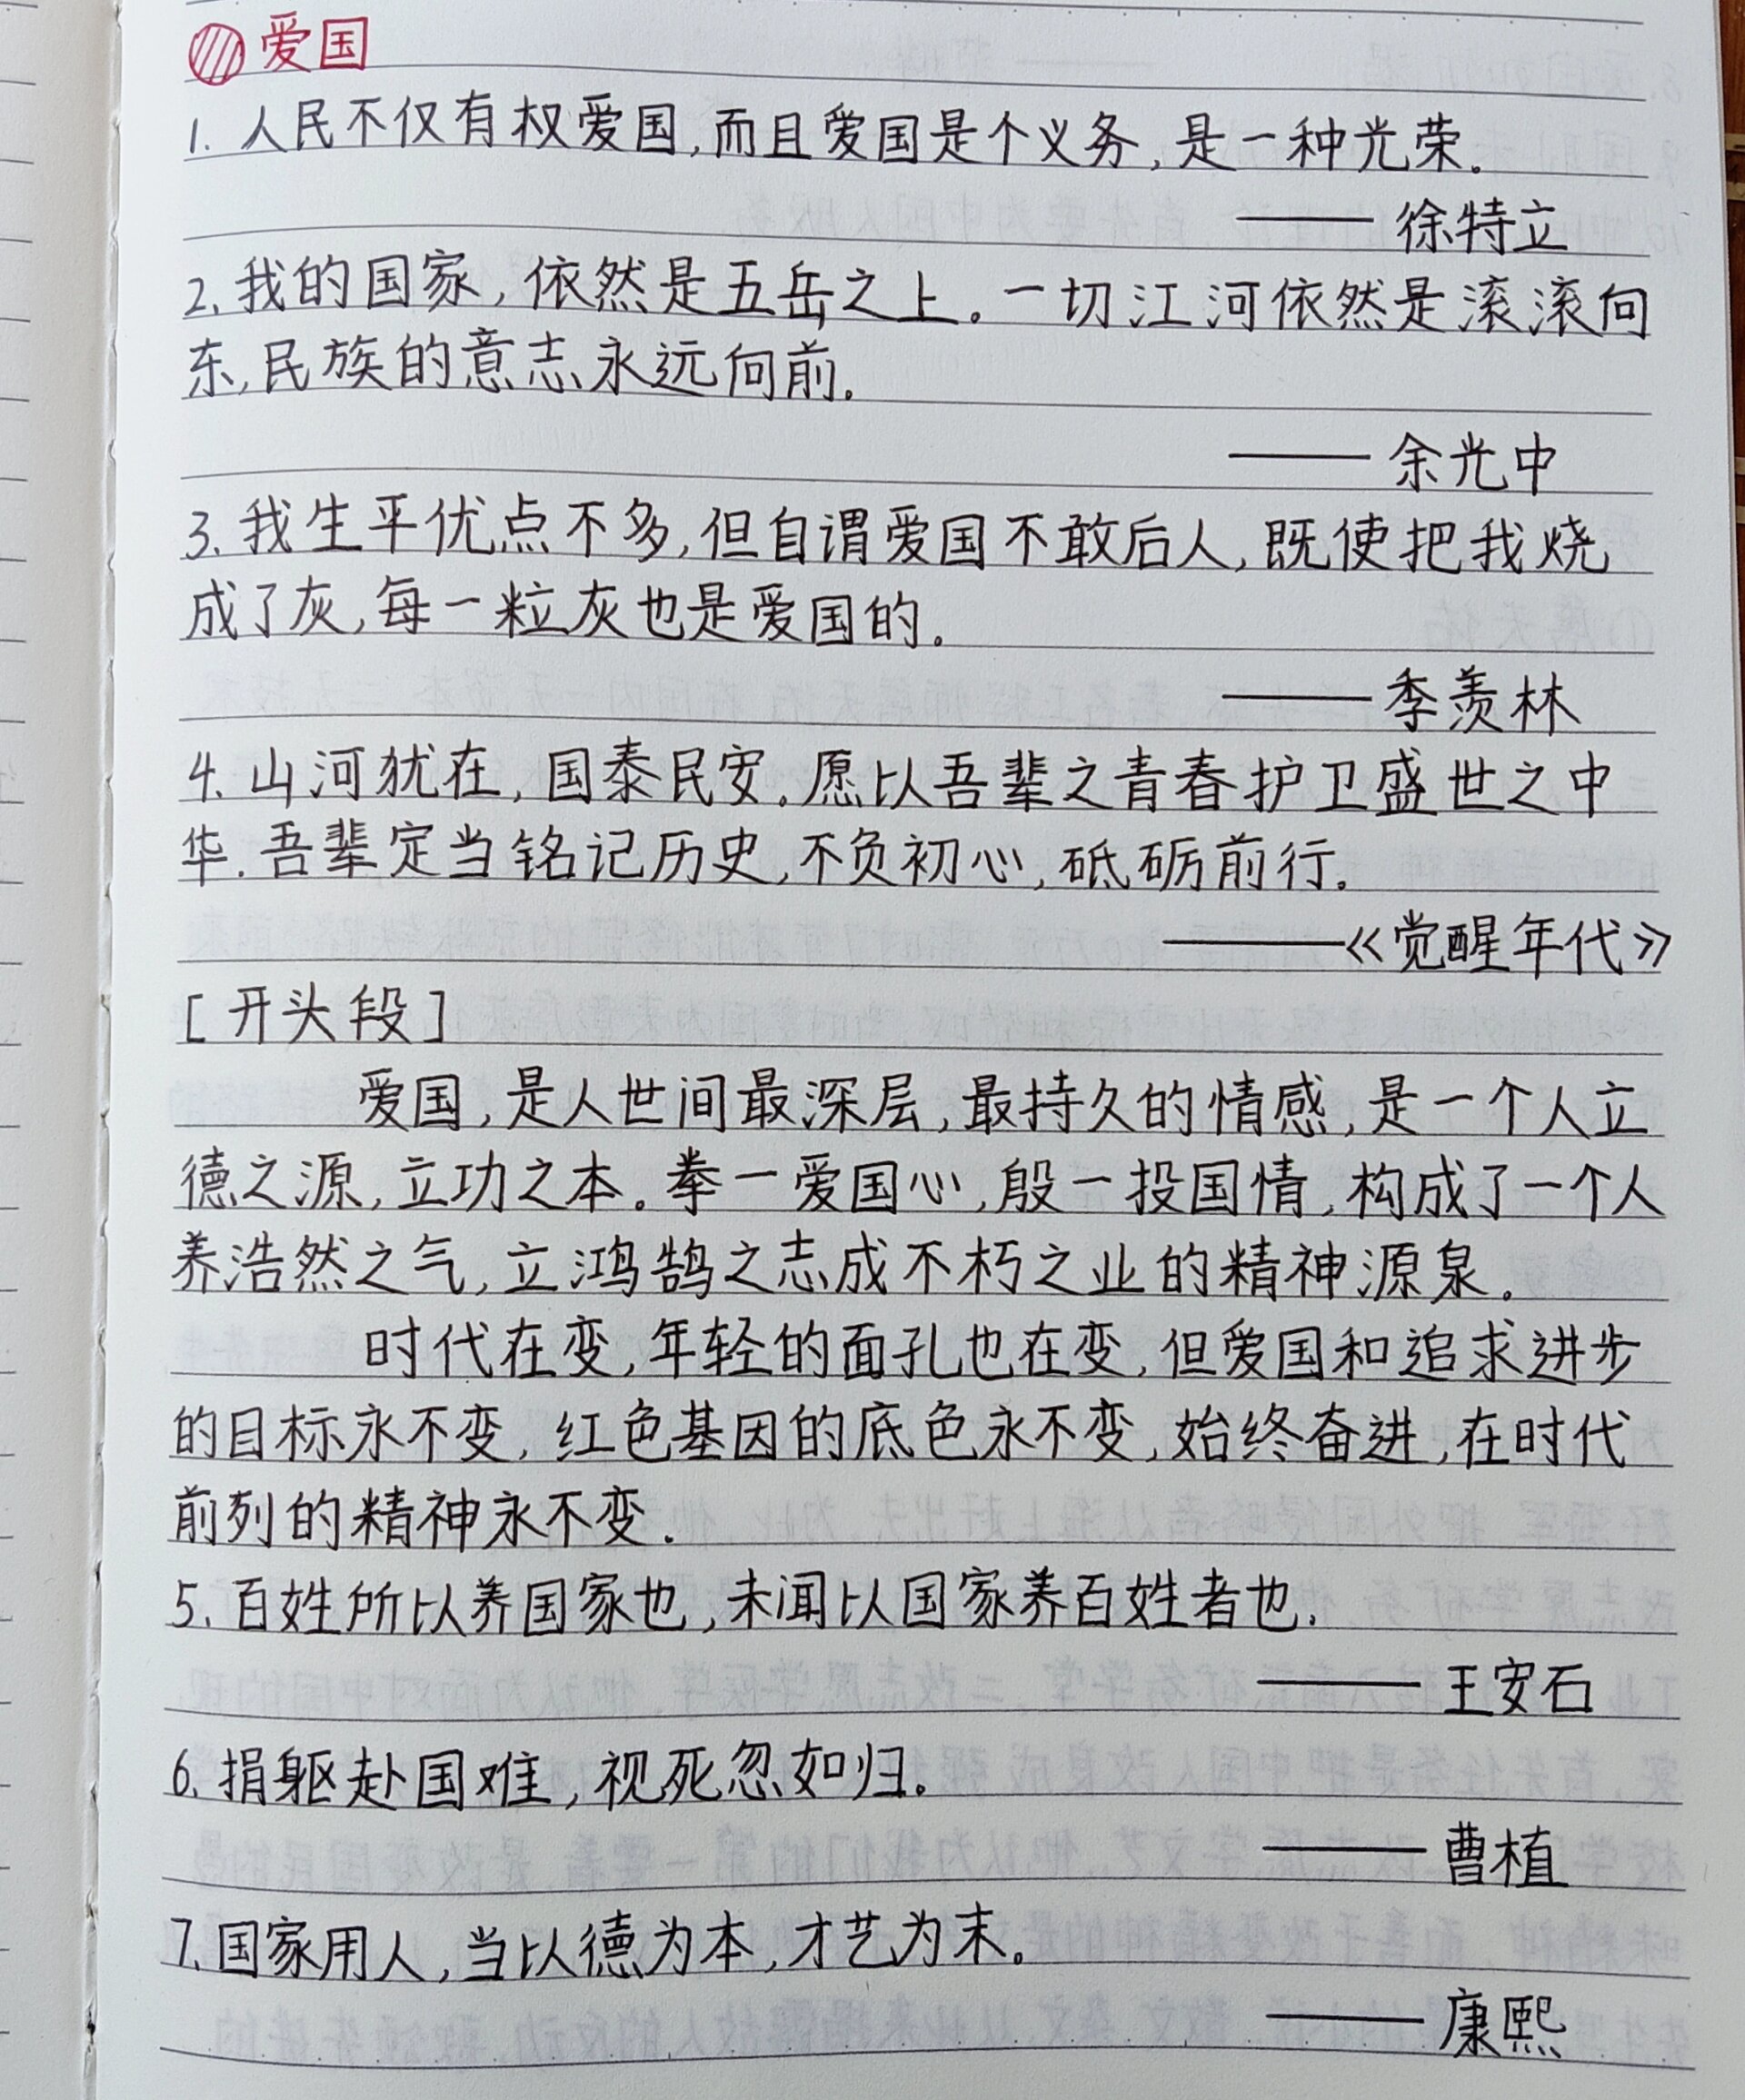 爱国
1. 人民不仅有权爱国,而且爱国是个义务,是一种光荣。
——徐特立
2. 我的国家,依然是五岳之上。一切江河依然是滚滚向
东,民族的意志永远向前。
——余光中
3. 我生平优点不多,但自谓爱国不敢后人,既使把我烧
成了灰,每一粒灰也是爱国的。
——季羡林
4. 山河犹在,国泰民安。愿以吾辈之青春护卫盛世之中
华.吾辈定当铭记历史,不负初心,砥砺前行。
——《觉醒年代》
[开头段]
爱国,是人世间最深层,最持久的情感,是一个人立
德之源,立功之本。拳一爱国心,殷一投国情,构成了一个人
养浩然之气,立鸿鹄之志成不朽之业的精神源泉。
时代在变,年轻的面孔也在变,但爱国和追求进步
的目标永不变,红色基因的底色永不变,始终奋进,在时代
前列的精神永不变.
5. 百姓所以养国家也,未闻以国家养百姓者也.
——王安石
6. 捐躯赴国难,视死忽如归。
——曹植
7. 国家用人,当以德为本,才艺为末。
——康熙